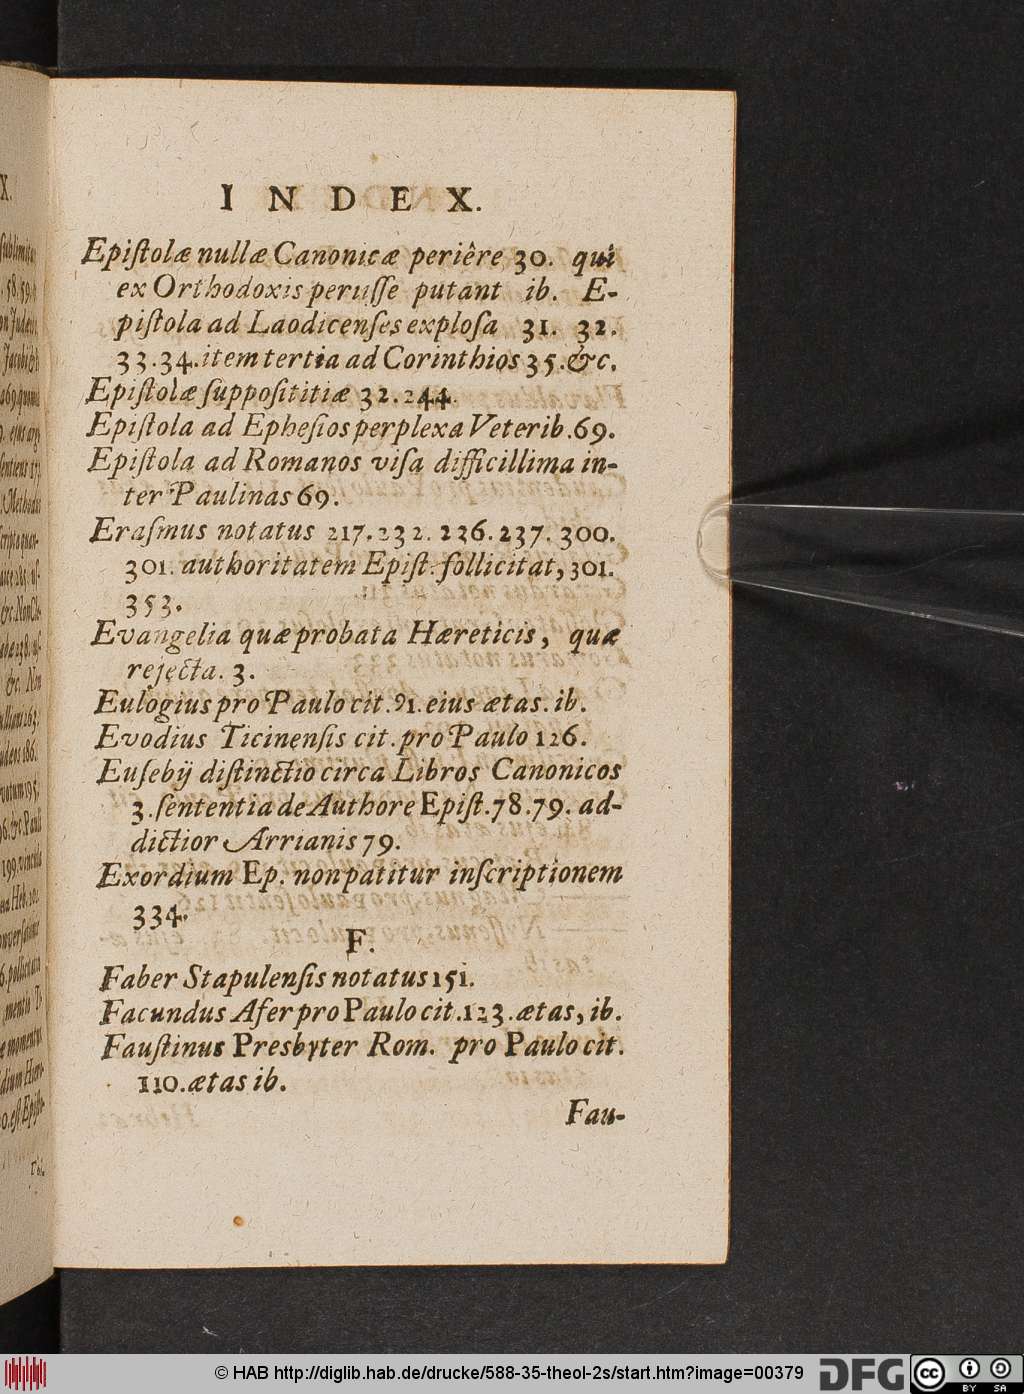 INDEX.
Epiſtolæ nullæ Canonicæ periêre 30. qui
ex Orthodoxis periſſe putant ib. E-
piſtola ad Laodicenſes exploſa 31. 32.
33.34.item tertia ad Corinthios 35.&c.
Epiſtolæ ſuppoſititiæ 32.244.
Epiſtola ad Epheſios perplexa Veterib.69.
Epiſtola ad Romanos viſa difficillima in-
ter Paulinas 69.
Eraſmus notatus 217.232. 236.237. 300.
301. authoritatem Epiſt. ſollicitat, 301.
353.
Evangelia quæ probata Hæreticis, quæ
rejecta. 3.
Eulogius pro Paulo cit.91.eius ætas. ib.
Evodius Ticinenſis cit. pro Paulo 126.
Euſebij diſtinctio circa Libros Canonicos
3.ſententia de Authore Epiſt.78.79. ad-
dictior Arrianis 79.
Exordium Ep. non patitur inſcriptionem
334.
F.
Faber Stapulenſis notatus 151.
Facundus Afer pro Paulo cit.123.ætas, ib.
Fauſtinus Presbyter Rom. pro Paulo cit.
110.ætas ib.
Fau-
© HAB http://diglib.hab.de/drucke/588-35-theol-2s/start.htm?image=00379
DFG
cc
BY SA